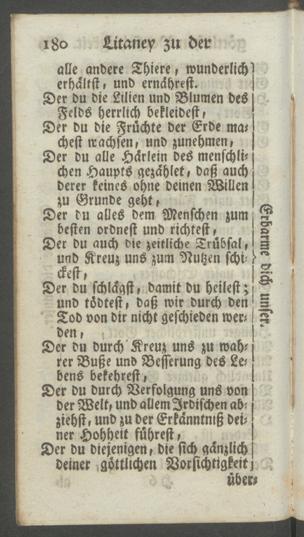 180 Litaney zu der
alle andere Thiere, wunderlich
erhältst, und ernährest.
Der du die Lilien und Blumen des
Felds herrlich bekleidest,
Der du die Früchte der Erde ma-
chest wachsen, und zunehmen,
Der du alle Härlein des menschli-
chen Haupts gezählet, daß auch
derer keines ohne deinen Willen
zu Grunde geht,
Der du alles dem Menschen zum
besten ordnest und richtest,
Der du auch die zeitliche Trübsal,
und Kreuz uns zum Nutzen schi-
ckest,
Der du schlägst, damit du heilest;
und tödtest, daß wir durch den
Tod von dir nicht geschieden wer-
den,
Der du durch Kreuz uns zu wah-
rer Buße und Besserung des Le-
bens bekehrest,
Der du durch Verfolgung uns von
der Welt, und allem Irdischen ab-
ziehst, und zu der Erkänntniß dei-
ner Hohheit führest,
Der du diejenigen, die sich gänzlich
deiner göttlichen Vorsichtigkeit
über-
Erbarme dich unser.